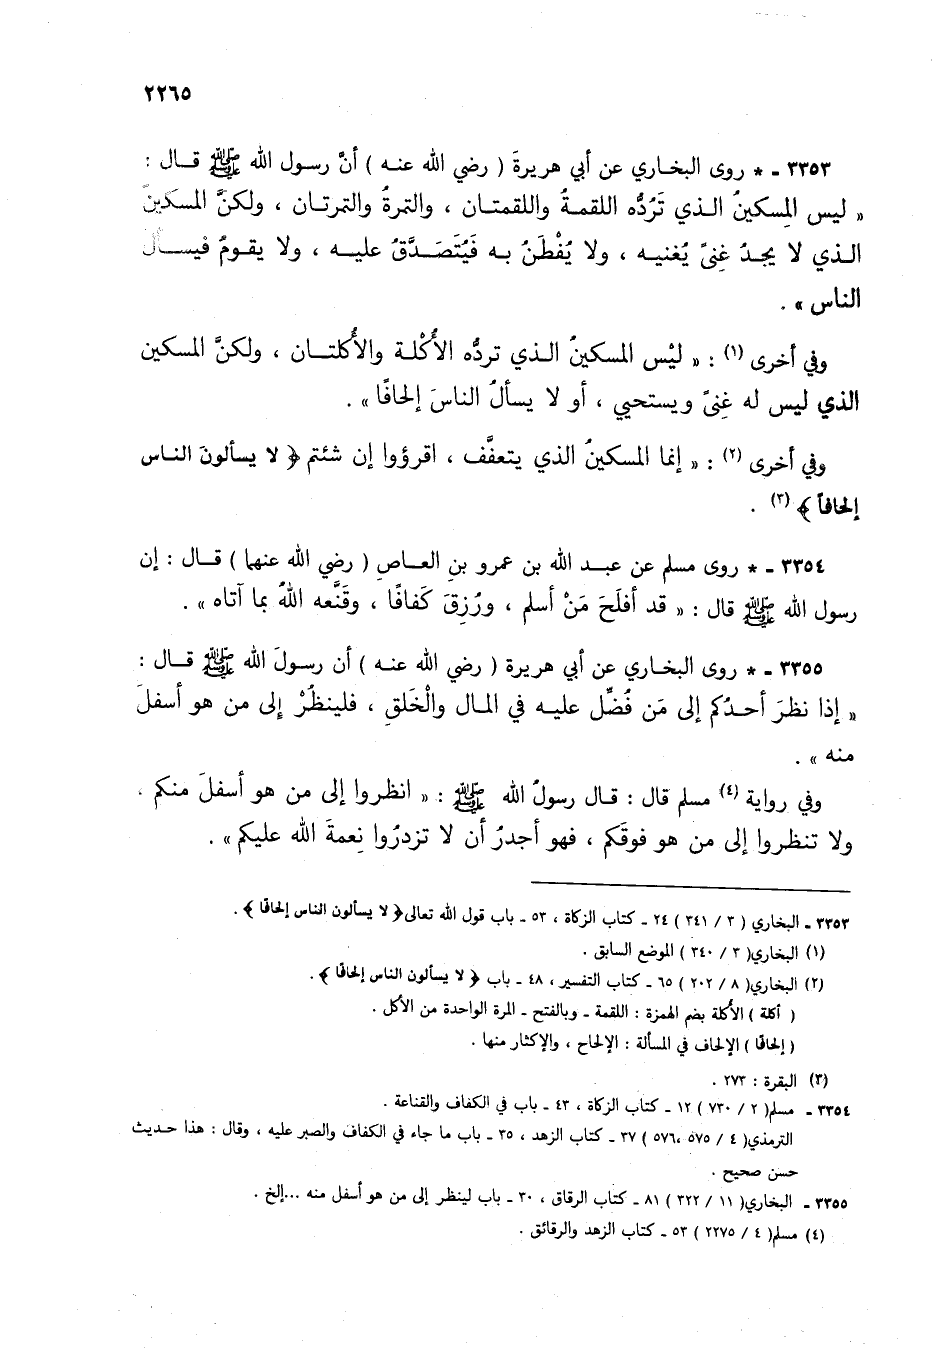 ٢٢٦٥
٣٣٥٣ - * روى البخاري عن أبي هريرةَ ( رضي الله عنه ) أنَّ رسول الله ﷺ قال :
« ليس المِسكينُ الذي تَرُدُّه اللقمةُ واللقمتان ، والتمرةُ والتمرتان ، ولكنَّ المسكينَ
الذي لا يجدُ غِنىً يُغنيه ، ولا يُفْطَنُ به فَيُتَصَدَّقُ عليه ، ولا يقومُ فيسألُ
الناس » .
وفي أخرى (١) : « ليْس المسكينُ الذي تردُّه الأُكْلة والأُكلتان ، ولكنَّ المسكين
الذي ليس له غِنىً ويستحيي ، أو لا يسألُ الناسَ إلحافًا » .
وفي أخرى (٢) : « إنما المسكينُ الذي يتعفَّف ، اقرؤوا إن شئتم ﴿ لا يسألونَ الناس
إلحافاً ﴾ (٣) .
٣٣٥٤ - * روى مسلم عن عبد الله بن عمرو بنِ العاصِ ( رضي الله عنهما ) قال : إن
رسول الله ﷺ قال : « قد أفلَحَ مَنْ أسلم ، ورُزِقَ كَفافًا ، وقَنَّعه اللهُ بما آتاه » .
٣٣٥٥ - * روى البخاري عن أبي هريرة ( رضي الله عنه ) أن رسولَ الله ﷺ قال :
« إذا نظرَ أحدُكم إلى مَن فُضِّل عليه في المال والْخَلقِ ، فلينظُرْ إلى من هو أسفلَ
منه » .
وفي رواية (٤) مسلم قال : قال رسولُ الله ﷺ : « انظروا إلى من هو أسفلَ منكم ،
ولا تنظروا إلى من هو فوقَكم ، فهو أجدرُ أن لا تزدرُوا نِعمةَ الله عليكم » .
٣٣٥٣ - البخاري ( ٣ / ٣٤١ ) ٢٤ - كتاب الزكاة ، ٥٣ - باب قول الله تعالى ﴿ لا يسألون الناس إلحافًا ﴾ .
(١) البخاري ( ٣ / ٣٤٠ ) الموضع السابق .
(٢) البخاري ( ٨ / ٢٠٢ ) ٦٥ - كتاب التفسير ، ٤٨ - باب ﴿ لا يسألون الناس إلحافًا ﴾ .
( أكلة ) الأُكلة بضم الهمزة : اللقمة - وبالفتح - المرة الواحدة من الأكل .
( إلحافًا ) الإلحاف في المسألة : الإلحاح ، والإكثار منها .
(٣) البقرة : ٢٧٣ .
٣٣٥٤ - مسلم ( ٢ / ٧٣٠ ) ١٢ - كتاب الزكاة ، ٤٣ - باب في الكفاف والقناعة .
الترمذي ( ٤ / ٥٧٥ ، ٥٧٦ ) ٣٧ - كتاب الزهد ، ٣٥ - باب ما جاء في الكفاف والصبر عليه ، وقال : هذا حديث
حسن صحيح .
٣٣٥٥ - البخاري ( ١١ / ٣٢٢ ) ٨١ - كتاب الرقاق ، ٣٠ - باب لينظر إلى من هو أسفل منه ...إلخ .
(٤) مسلم ( ٤ / ٢٢٧٥ ) ٥٣ - كتاب الزهد والرقائق .